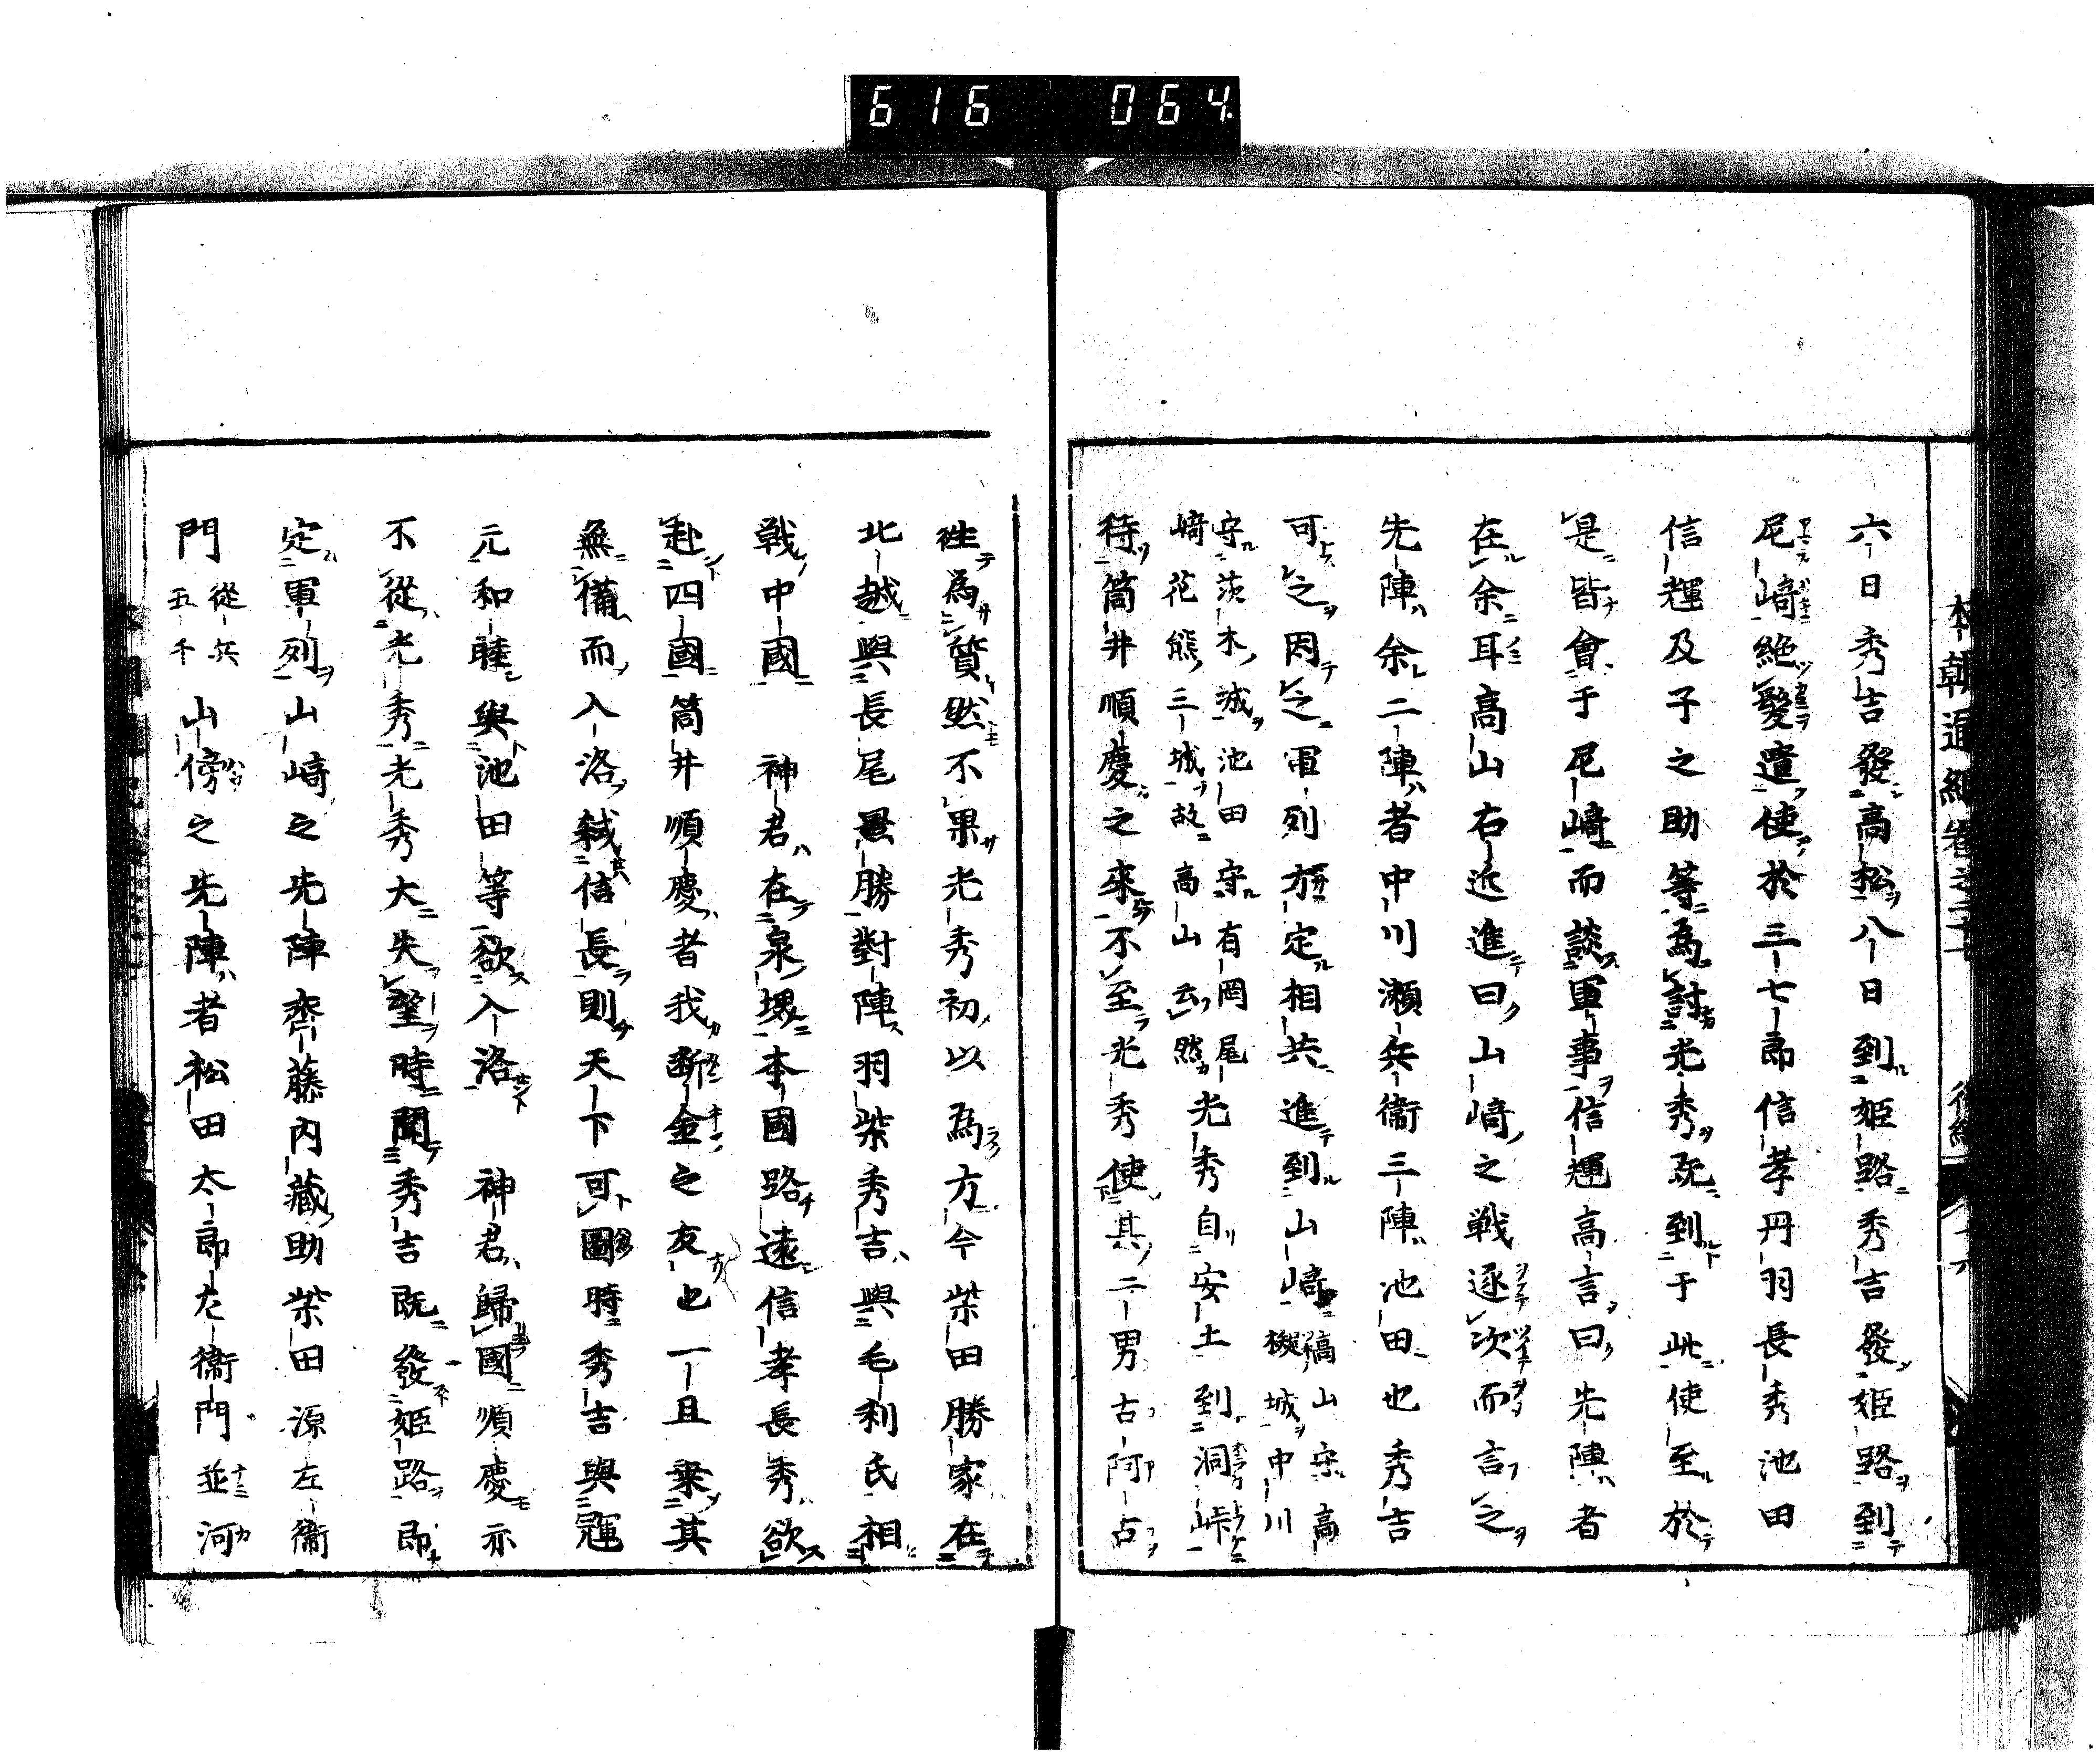 616 064
本朝通紀卷之二十七 後編
六日秀吉發高松八日到姬路秀吉發姬路到
尼﨑絶髮遣使於三七郎信孝丹羽長秀池田
信輝及子之助等為討光秀既到于此使至於
是皆會于尼﨑而談軍事信輝高言曰先陣者
在余耳高山右近進曰山﨑之戦逐次而言之
先陣余二陣者中川瀬兵衞三陣池田也秀吉
可之因之軍列方定相共進到山﨑 高山守高
槻城中川
守茨木城池田守有岡尼
﨑花熊三城故高山云然 光秀自安土到洞峠
待筒井順慶之來不至光秀使其二男古阿古
徃為質然不果光秀初以為方今柴田勝家在
北越與長尾景勝對陣羽柴秀吉與毛利氏相
戰中國 神君在泉堺本國路遠信孝長秀欲
赴四國筒井順慶者我断金之友也一旦乗其
無備而入洛弑信長則天下可圖時秀吉與輝
元和睦與池田等欲入洛 神君歸國順慶亦
不從光秀光秀大失望時聞秀吉既發姬路即
定軍列山﨑之先陣齊藤内藏助柴田源左衞
門 從兵
五千 山傍之先陣者松田太郎左衞門並河